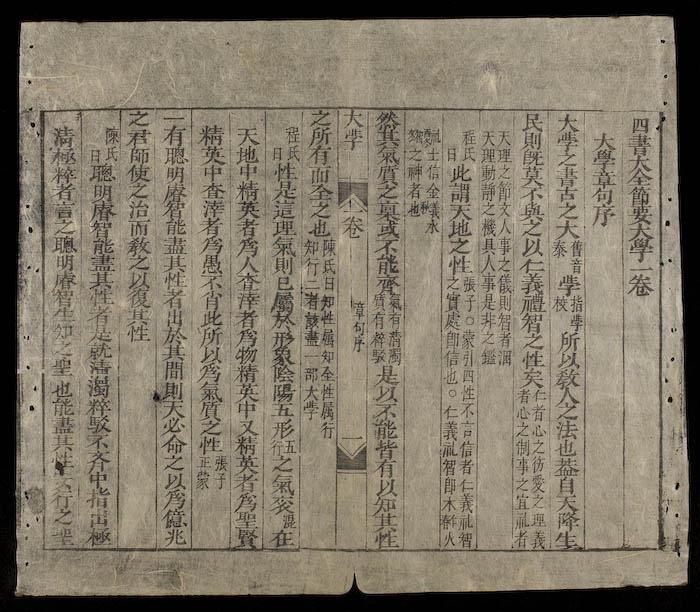 四書大全節要大學一卷
大學章句序
大學之書古之大舊音泰學指學校所以敎人之法也蓋自天降生
民則旣莫不與之以仁義禮智之性矣仁者心之彷愛之理義者心之制事之宜礼者
天理之節文人事之儀則智者涵
天理動靜之機具人事是非之鑑
程氏曰此謂天地之性張子○蒙引四性不言信者仁義礼智之實處即信也○仁義礼智即木
之神者也
然其氣質之稟或不能齊氣有清濁質有粹駁是以不能皆有以知其性
大學 一卷 章句序 一
之所有而全之也陳氏曰知性属知全性属行知行二者該盡一部大學
程氏曰性是這理氣則已屬於形象陰陽五形五行之氣衮混在
天地中精英者爲人查滓者爲物精英中又精英者爲聖賢
精英中查滓者爲愚不肖此所以爲氣質之性張子正蒙
一有聰明睿智能盡其性者出於其間則天必命之以爲億兆
之君師使之治而敎之以復其性
陳氏曰聰明睿智能盡其性者是就清濁粹駁不齊中指出極
清極粹者言之聰明睿智生知之聖也能盡其性安行之聖